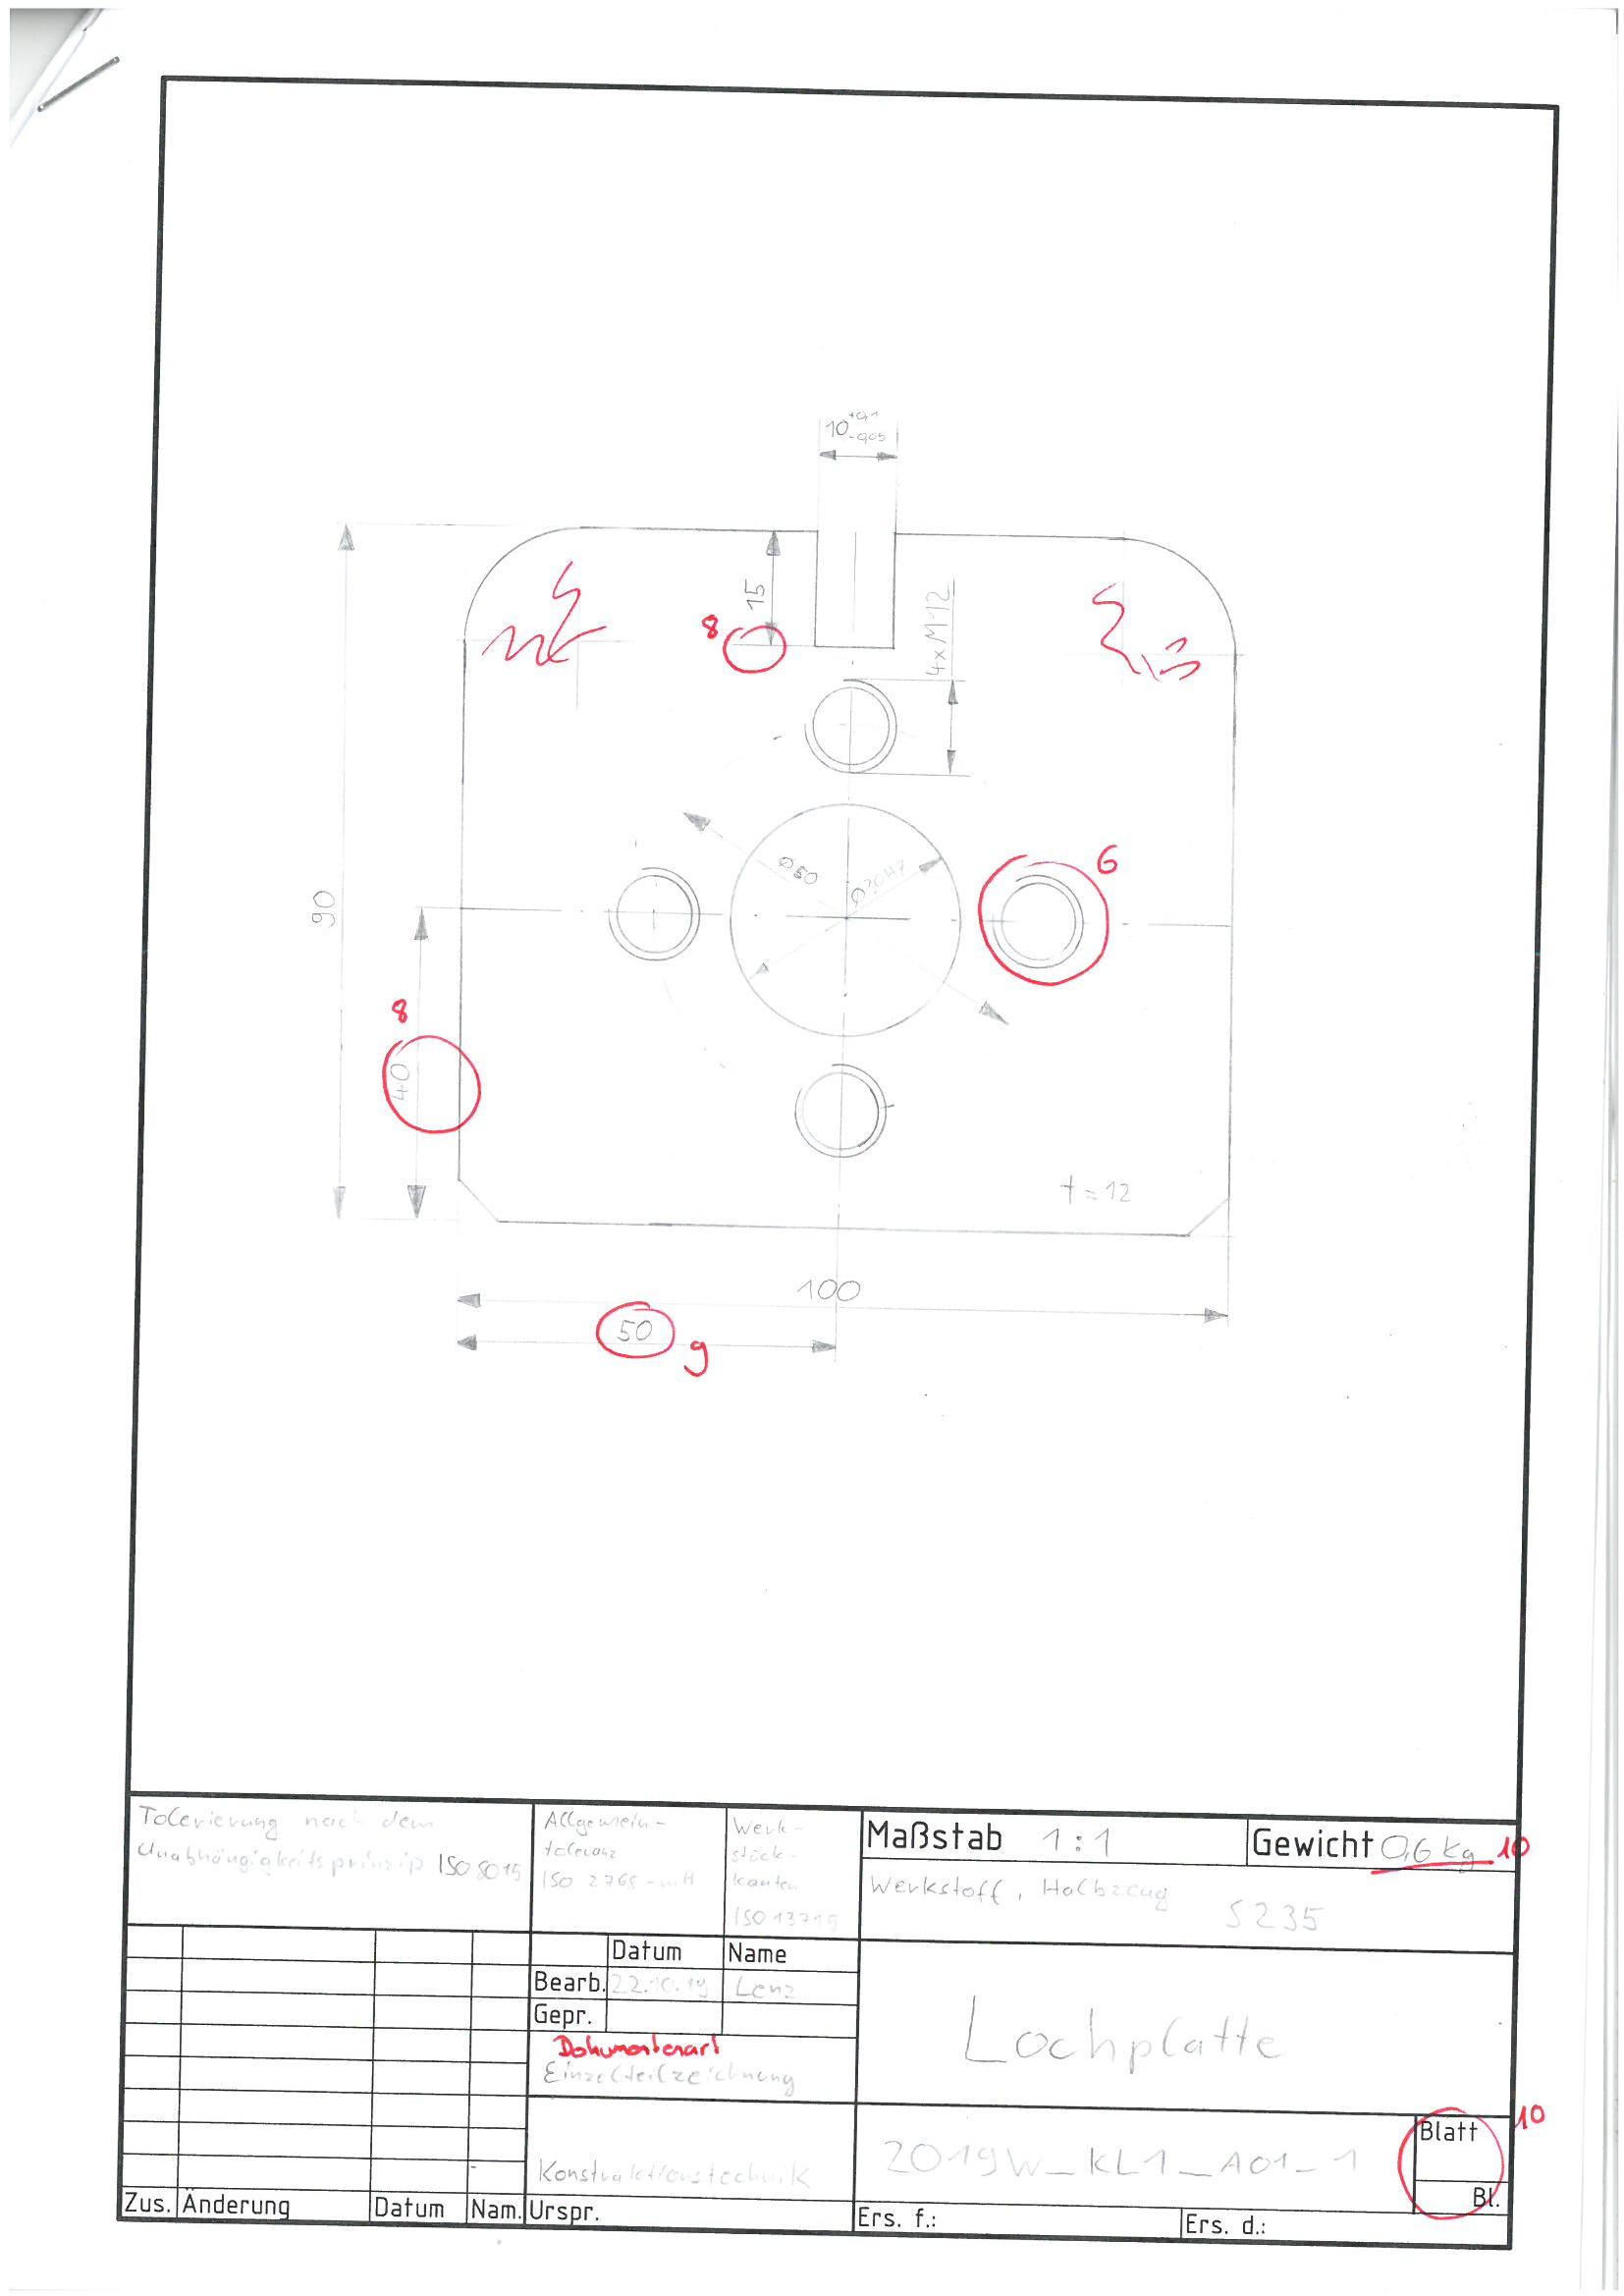 10 +0,1 -0,05
15
8
4xM12
6
Ø50
Ø30H7
90
8
40
t=12
100
50
9
Tolerierung nach dem
Unabhängigkeitsprinzip ISO 8015
Allgemein-
toleranz
ISO 2768-mH
Werk-
stück-
kanten
ISO 13715
Maßstab 1:1
Gewicht 0,6 kg 10
Werkstoff, Halbzeug
S235
Datum Name
Bearb. 22.10.19 Lenz
Gepr.
Dokumentenart
Einzelteilzeichnung
Lochplatte
Konstruktionstechnik
2019W_KL1_A01_1
Blatt 10
Bl.
Zus. Änderung Datum Nam. Urspr.
Ers. f.: Ers. d.: